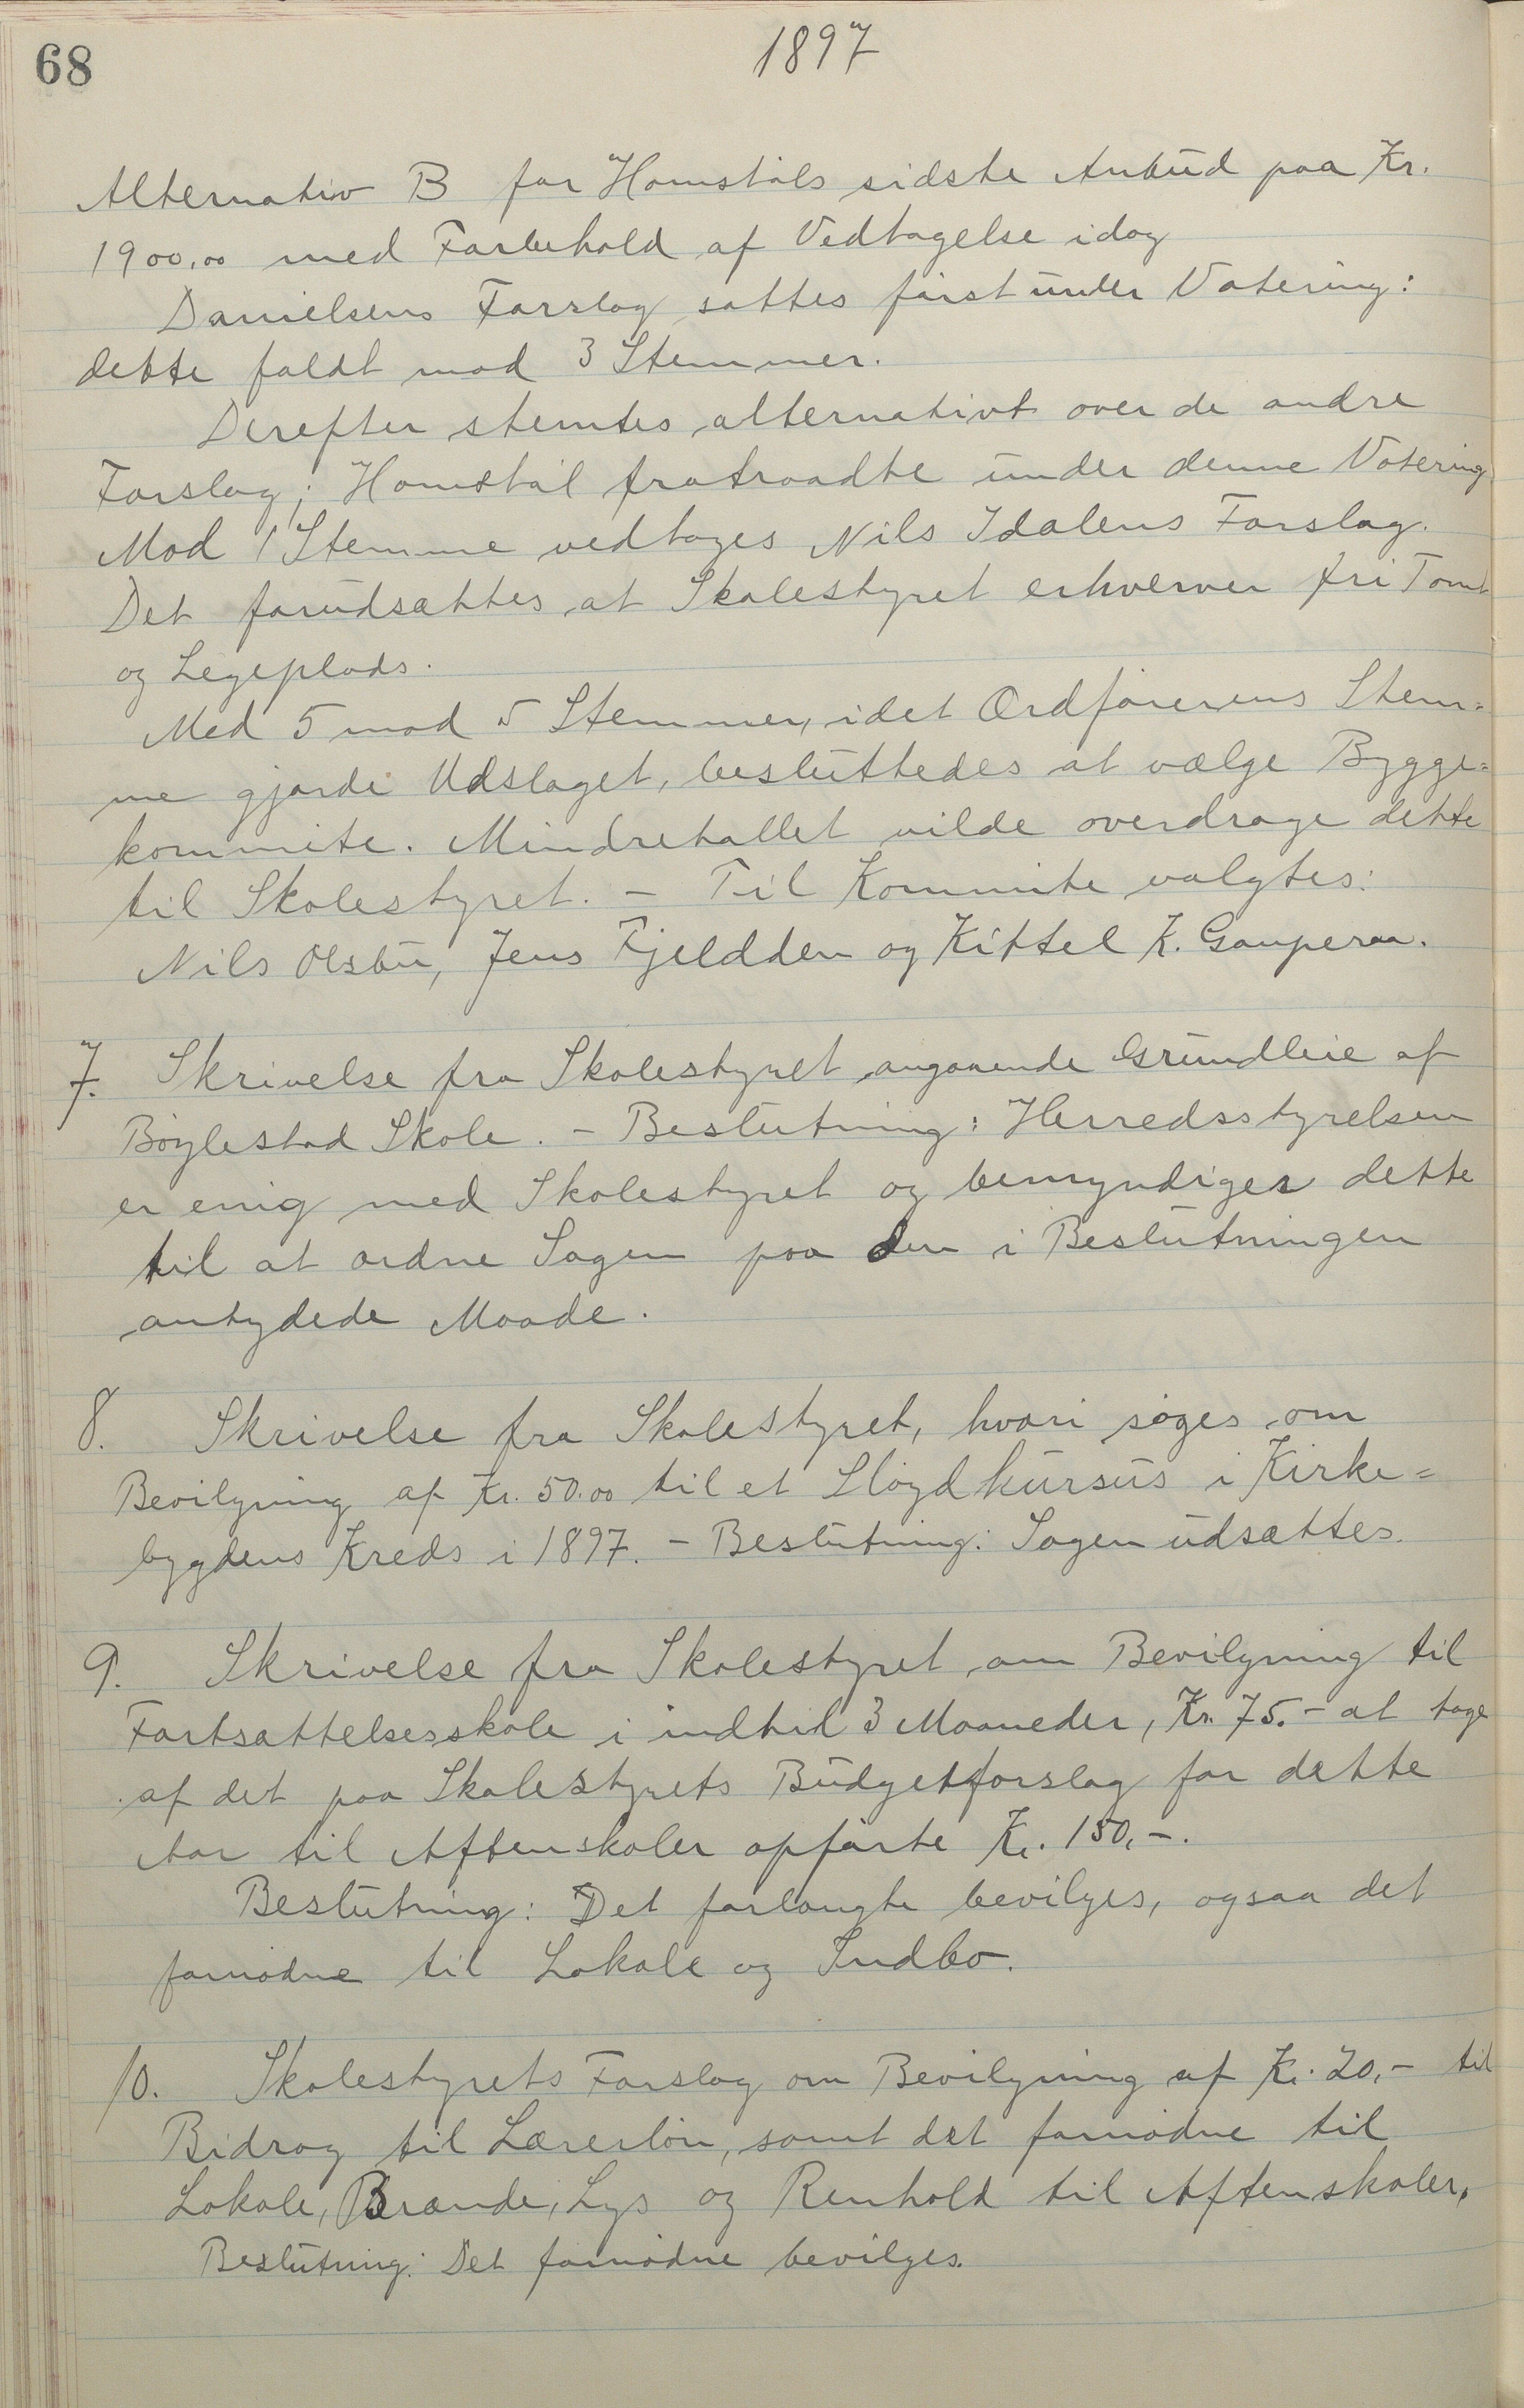 68
1897
Alternativ B for Homstøls sidste Anbud paa Kr.
1900,00 med Forbehold af Vedtagelse idag
Danielsens Forslag sattes først under Votering:
dette faldt mod 3 Stemmer.
Derefter stemtes alternativt over de andre
Forslag; Homstøl fratraadte under denne Votering
Mod 1 Stemme vedtoges Nils Idalens Forslag.
Det forudsættes at Skolestyret erhverver fri Tomt
og Legeplads.
Med 5 mod 5 Stemmer, idet Ordførerens Stem-
me gjorde Udslaget, besluttedes at vælge Bygge=
kommite. Mindretallet vilde overdrage dette
til Skolestyret. – Til Kommite valgtes:
Nils Olsbu, Jens Fjeldden og Kittel K. Gauperaa.
7. Skrivelse fra Skolestyret angaaende Grundleie af
Bøylestad Skole. – Beslutning: Herredsstyrelsen
er enig med Skolestyret og bemyndiger dette
til at ordne Sagen paa den i Beslutningen
antydede Maade.
8. Skrivelse fra Skolestyret, hvori søges om
Bevilgning af Kr. 50.00 til et Sløydkursus i Kirke=
bygdens Kreds i 1897. – Beslutning: Sagen udsættes.
9. Skrivelse fra Skolestyret om Bevilgning til
Fortsættelsesskole i indtil 3 Maaneder, Kr. 75.– at tage
af det paa Skolestyrets Budgetforslag for dette
Aar til Aftenskoler opførte Kr. 150,–.
Beslutning: Det forlangte bevilges, ogsaa det
fornødne til Lokale og Indbo.
10. Skolestyrets Forslag om Bevilgning af Kr. 20,– til
Bidrag til Lærerløn, samt det fornødne til
Lokale, Brænde, Lys og Renhold til Aftenskoler.
Beslutning: Det fornødne bevilges.